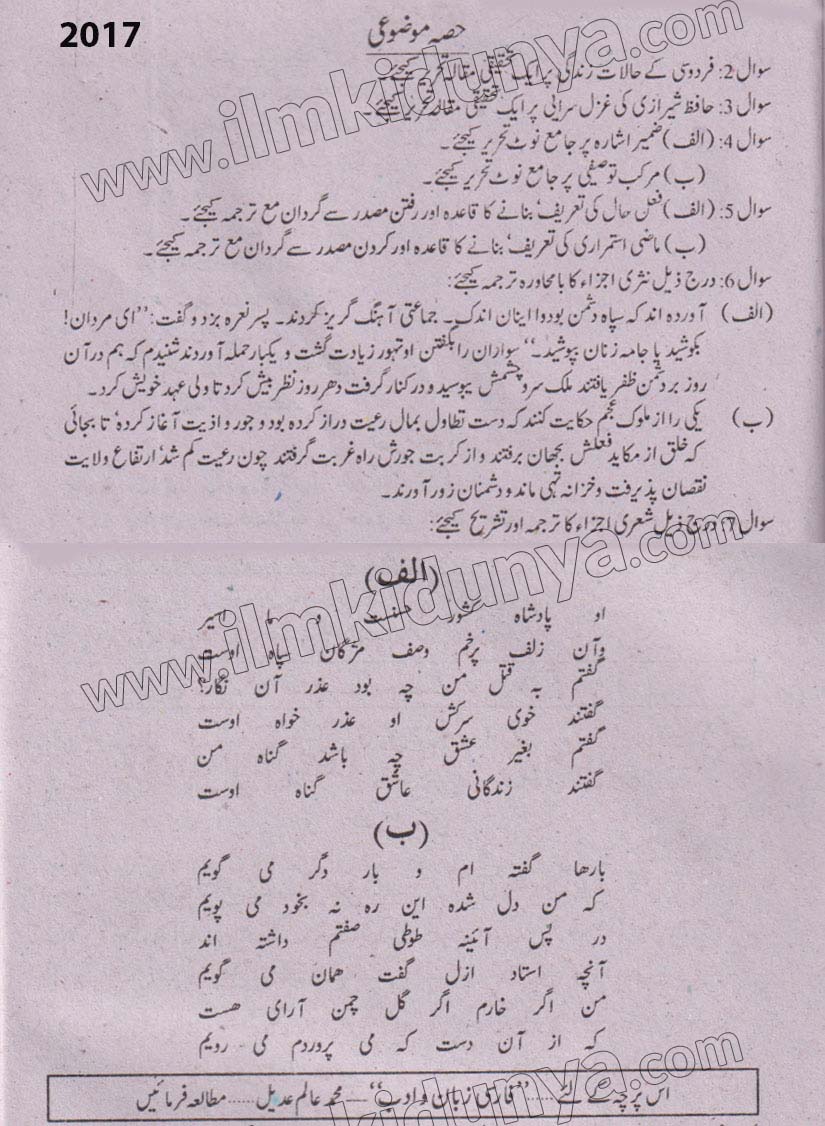 2017
حصہ موضوعی
سوال 2: فردوسی کے حالات زندگی پر ایک تحقیقی مقالہ تحریر کیجئے۔
سوال 3: حافظ شیرازی کی غزل سرائی پر ایک تحقیقی مقالہ تحریر کیجئے۔
سوال 4: (الف) ضمیر اشارہ پر جامع نوٹ تحریر کیجئے۔
(ب) مرکب توصیفی پر جامع نوٹ تحریر کیجئے۔
سوال 5: (الف) فعل حال کی تعریف' بنانے کا قاعدہ اور رفتن مصدر سے گردان مع ترجمہ کیجئے۔
(ب) ماضی استمراری کی تعریف' بنانے کا قاعدہ اور کردن مصدر سے گردان مع ترجمہ کیجئے۔
سوال 6: درج ذیل نثری اجزاء کا بامحاورہ ترجمہ کیجئے:
(الف) آوردہ اند کہ سپاہ دشمن بود و اینان اندک۔ جماعتی آہنگ گریز کردند۔ پسر نعرہ بزد و گفت: ''ای مردان!
بکوشید یا جامہ زنان بپوشید۔'' سواران را بگفتن او تہور زیادت گشت و یکبار حملہ آوردند شنیدم کہ ہم در آن
روز بر دشمن ظفر یافتند ملک سر و چشمش ببوسید و در کنار گرفت و ہر روز نظر بیش کرد تا ولی عہد خویش کرد۔
(ب) یکی را از ملوک عجم حکایت کنند کہ دست تطاول بمال رعیت دراز کردہ بود و جور و اذیت آغاز کردہ' تا بجائی
کہ خلق از مکاید فعلش بجھان برفتند و از کربت جورش راہ غربت گرفتند چون رعیت کم شد' ارتفاع ولایت
نقصان پذیرفت و خزانہ تہی ماند و دشمنان زور آورند۔
سوال 7: درج ذیل شعری اجزاء کا ترجمہ اور تشریح کیجئے:
(الف)
او پادشاہ کشور حسنست و ما اسیر
وآن زلف پرخم وصف مژگان سپاہ اوست
گفتم بہ قتل من چہ بود عذر آن نگار؟
گفتند خوی سرکش او عذر خواہ اوست
گفتم بغیر عشق چہ باشد گناہ من
گفتند زندگانی عاشق گناہ اوست
(ب)
بارھا گفتہ ام و بار دگر می گویم
کہ من دل شدہ این رہ نہ بخود می پویم
در پس آئینہ طوطی صفتم داشتہ اند
آنچہ استاد ازل گفت ھمان می گویم
من اگر خارم اگر گل چمن آرای ھست
کہ از آن دست کہ می پروردم می رویم
اس پرچہ کے لئے ...... ''فارسی زبان و ادب'' — محمد عالم عدیل ...... مطالعہ فرمائیں
www.ilmkidunya.com
www.ilmkidunya.com